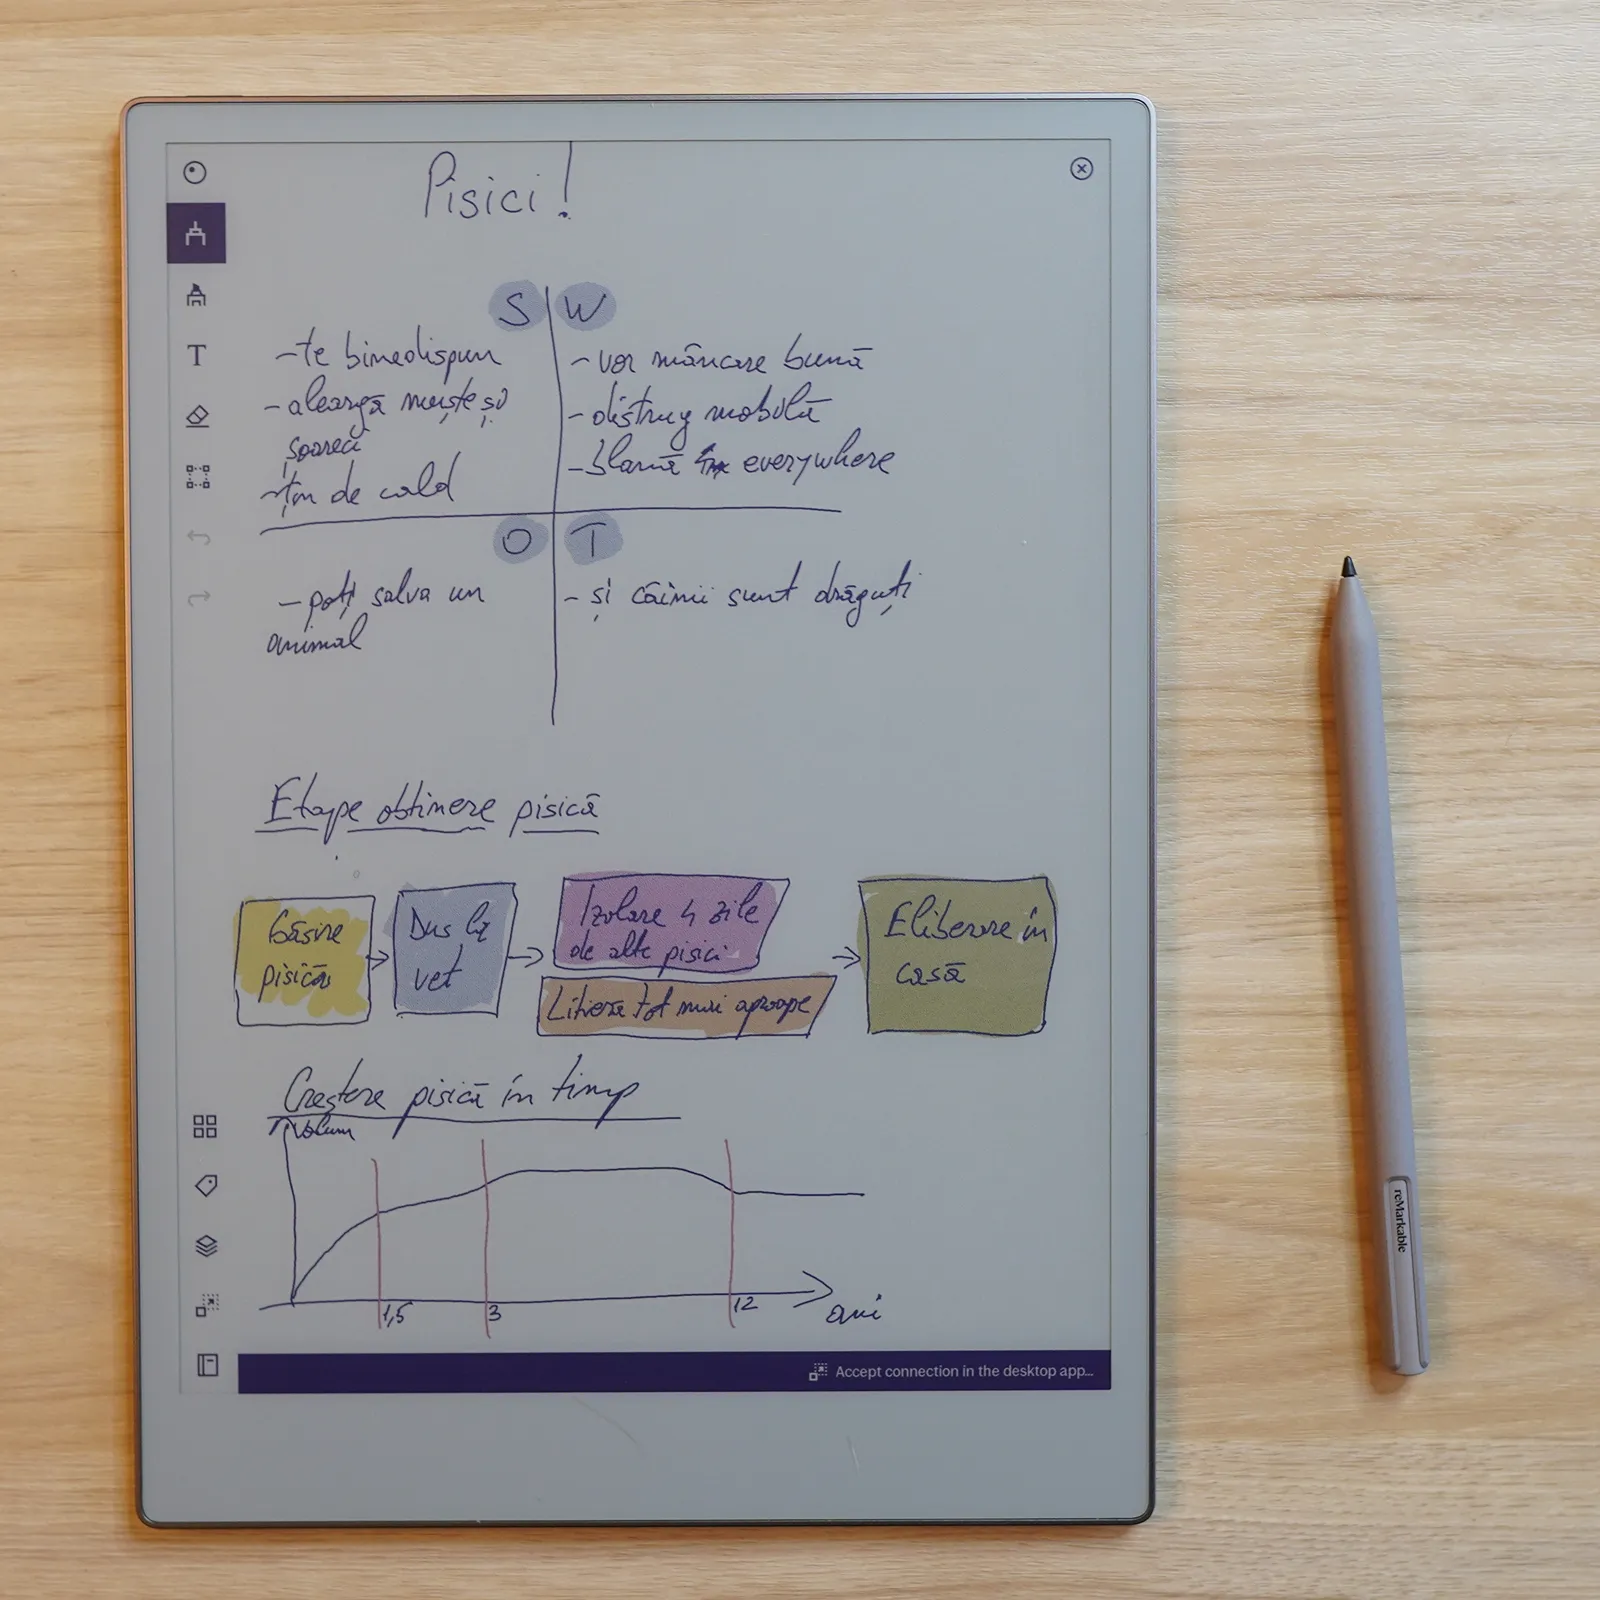 Pisici!
S
- te binedispun
- aleargă muște și
șoareci
- țin de cald
W
- vor mâncare bună
- distrug mobilă
- blană everywhere
O
- poți salva un
animal
T
- și câinii sunt drăguți
Etape obtinere pisică
Găsire
pisică
Dus la
vet
Izolare 4 zile
de alte pisici
Litiera tot mai aproape
Eliberare în
casă
Creștere pisică în timp
Volum
1,5
3
12
ani
Accept connection in the desktop app...
T
reMarkable